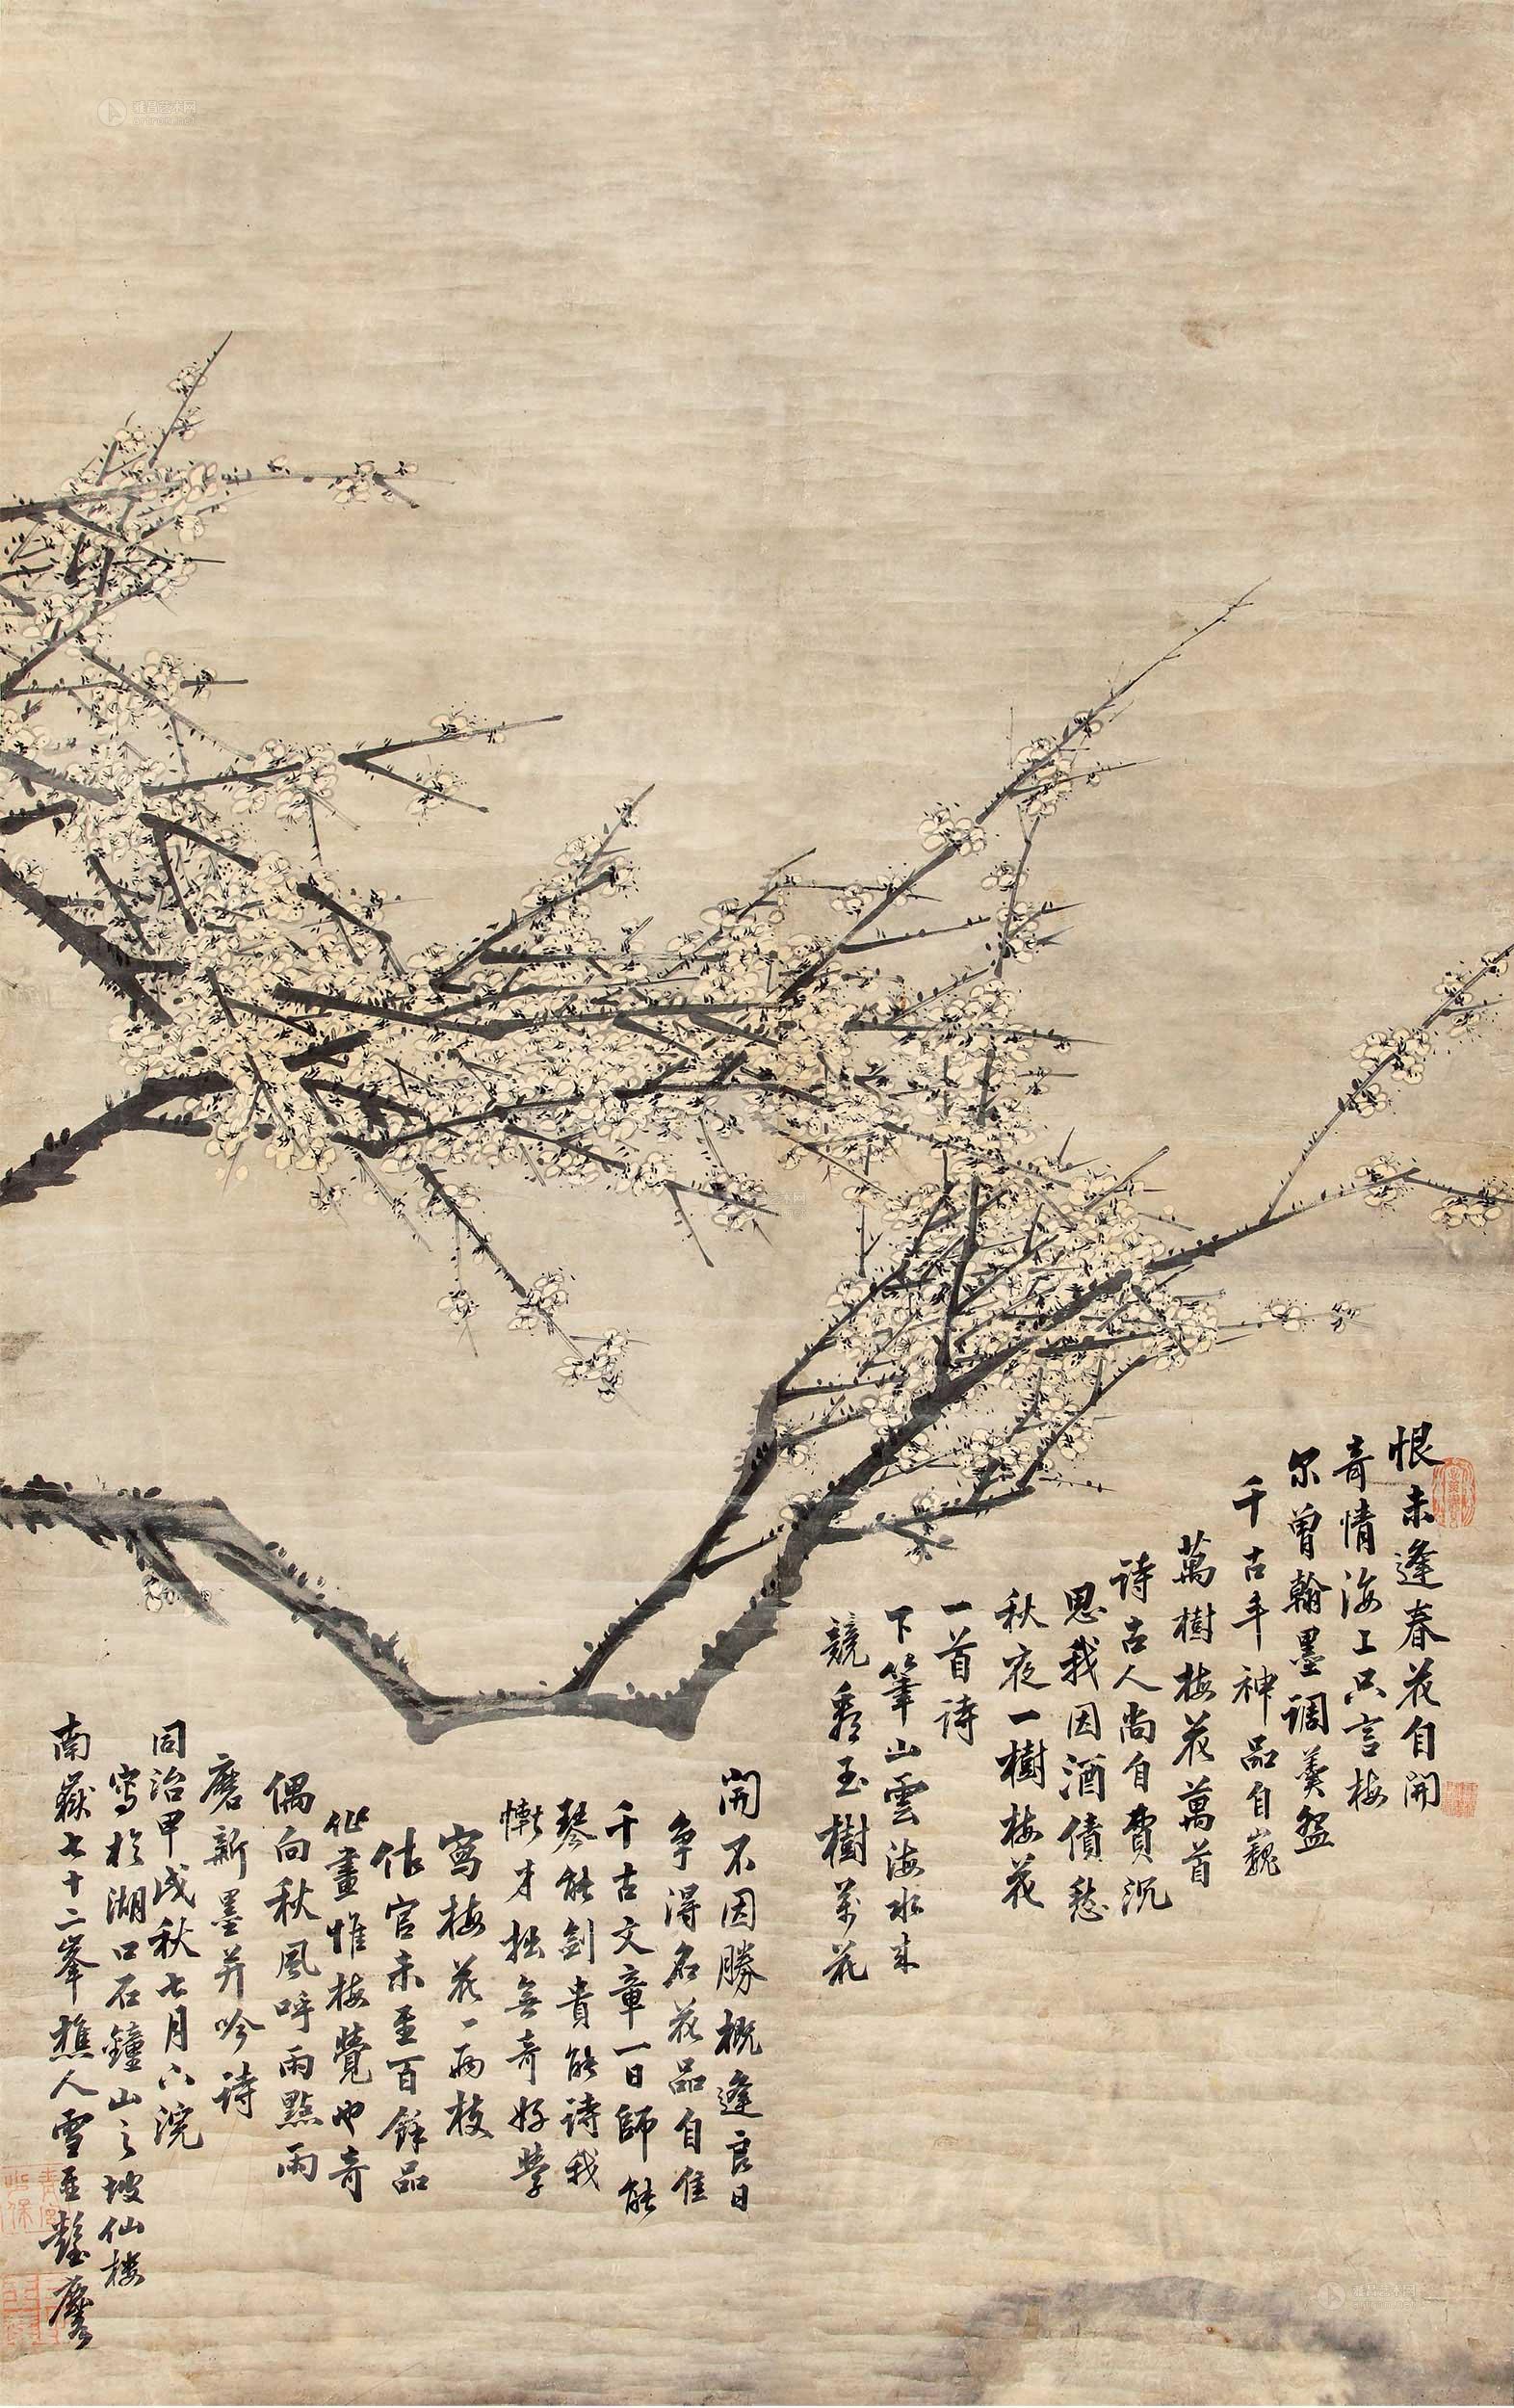 恨未逢春花自開
奇情海上只言梅
尔曾翰墨調羹盌
千古年神品自巍
萬樹梅花萬首
詩古人尚自費沉
思我因酒債愁
秋夜一樹梅花
一首詩
下筆山雲海水來
競秀玉樹萬花
開不因勝概逢良日
争得名花品自佳
千古文章一日師能
琴能劍貴能詩我
慚才拙無奇好學
寫梅花一兩枝
仕官未至百餘品
作畫惟梅覺也奇
偶向秋風呼雨點雨
磨新墨并吟詩
同治甲戌秋七月六浣
寫於湖口石鐘山之坡仙楼
南嶽七十二峯樵人雪
雅昌艺术网
雅昌艺术网